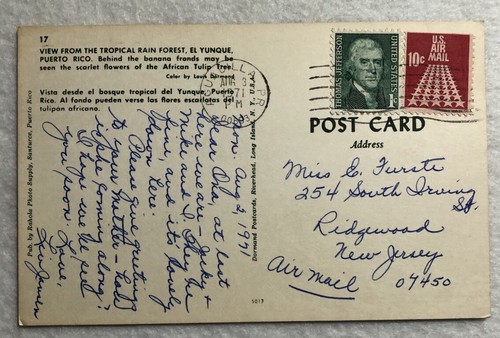 17
VIEW FROM THE TROPICAL RAIN FOREST, EL YUNQUE,
PUERTO RICO. Behind the banana fronds may be
seen the scarlet flowers of the African Tulip Tree.
Color by Louis Dormand
Vista desde el bosque tropical del Yunque, Puerto
Rico. Al fondo pueden verse las flores escarlatas del
tulipán africana.
Pub. by Rahola Photo Supply, Santurce, Puerto Rico
Dormand Postcards, Riverhead, Long Island, N.Y.
5017
Mon. Aug 2, 1971
Dear Ona, at last
here we are - Jacky +
Mike and I. They love
fun, and it's lovely
down here.
Please give greetings
to your Mother - Lola
is also coming along.
I hope we'll see
you soon
Love,
AUG 3
PM
1971
THOMAS JEFFERSON
UNITED STATES
1c
U.S.
AIR
MAIL
10c
POST CARD
Address
Miss C. Furste
254 South Irving
St.
Ridgewood
New Jersey
07450
Air Mail